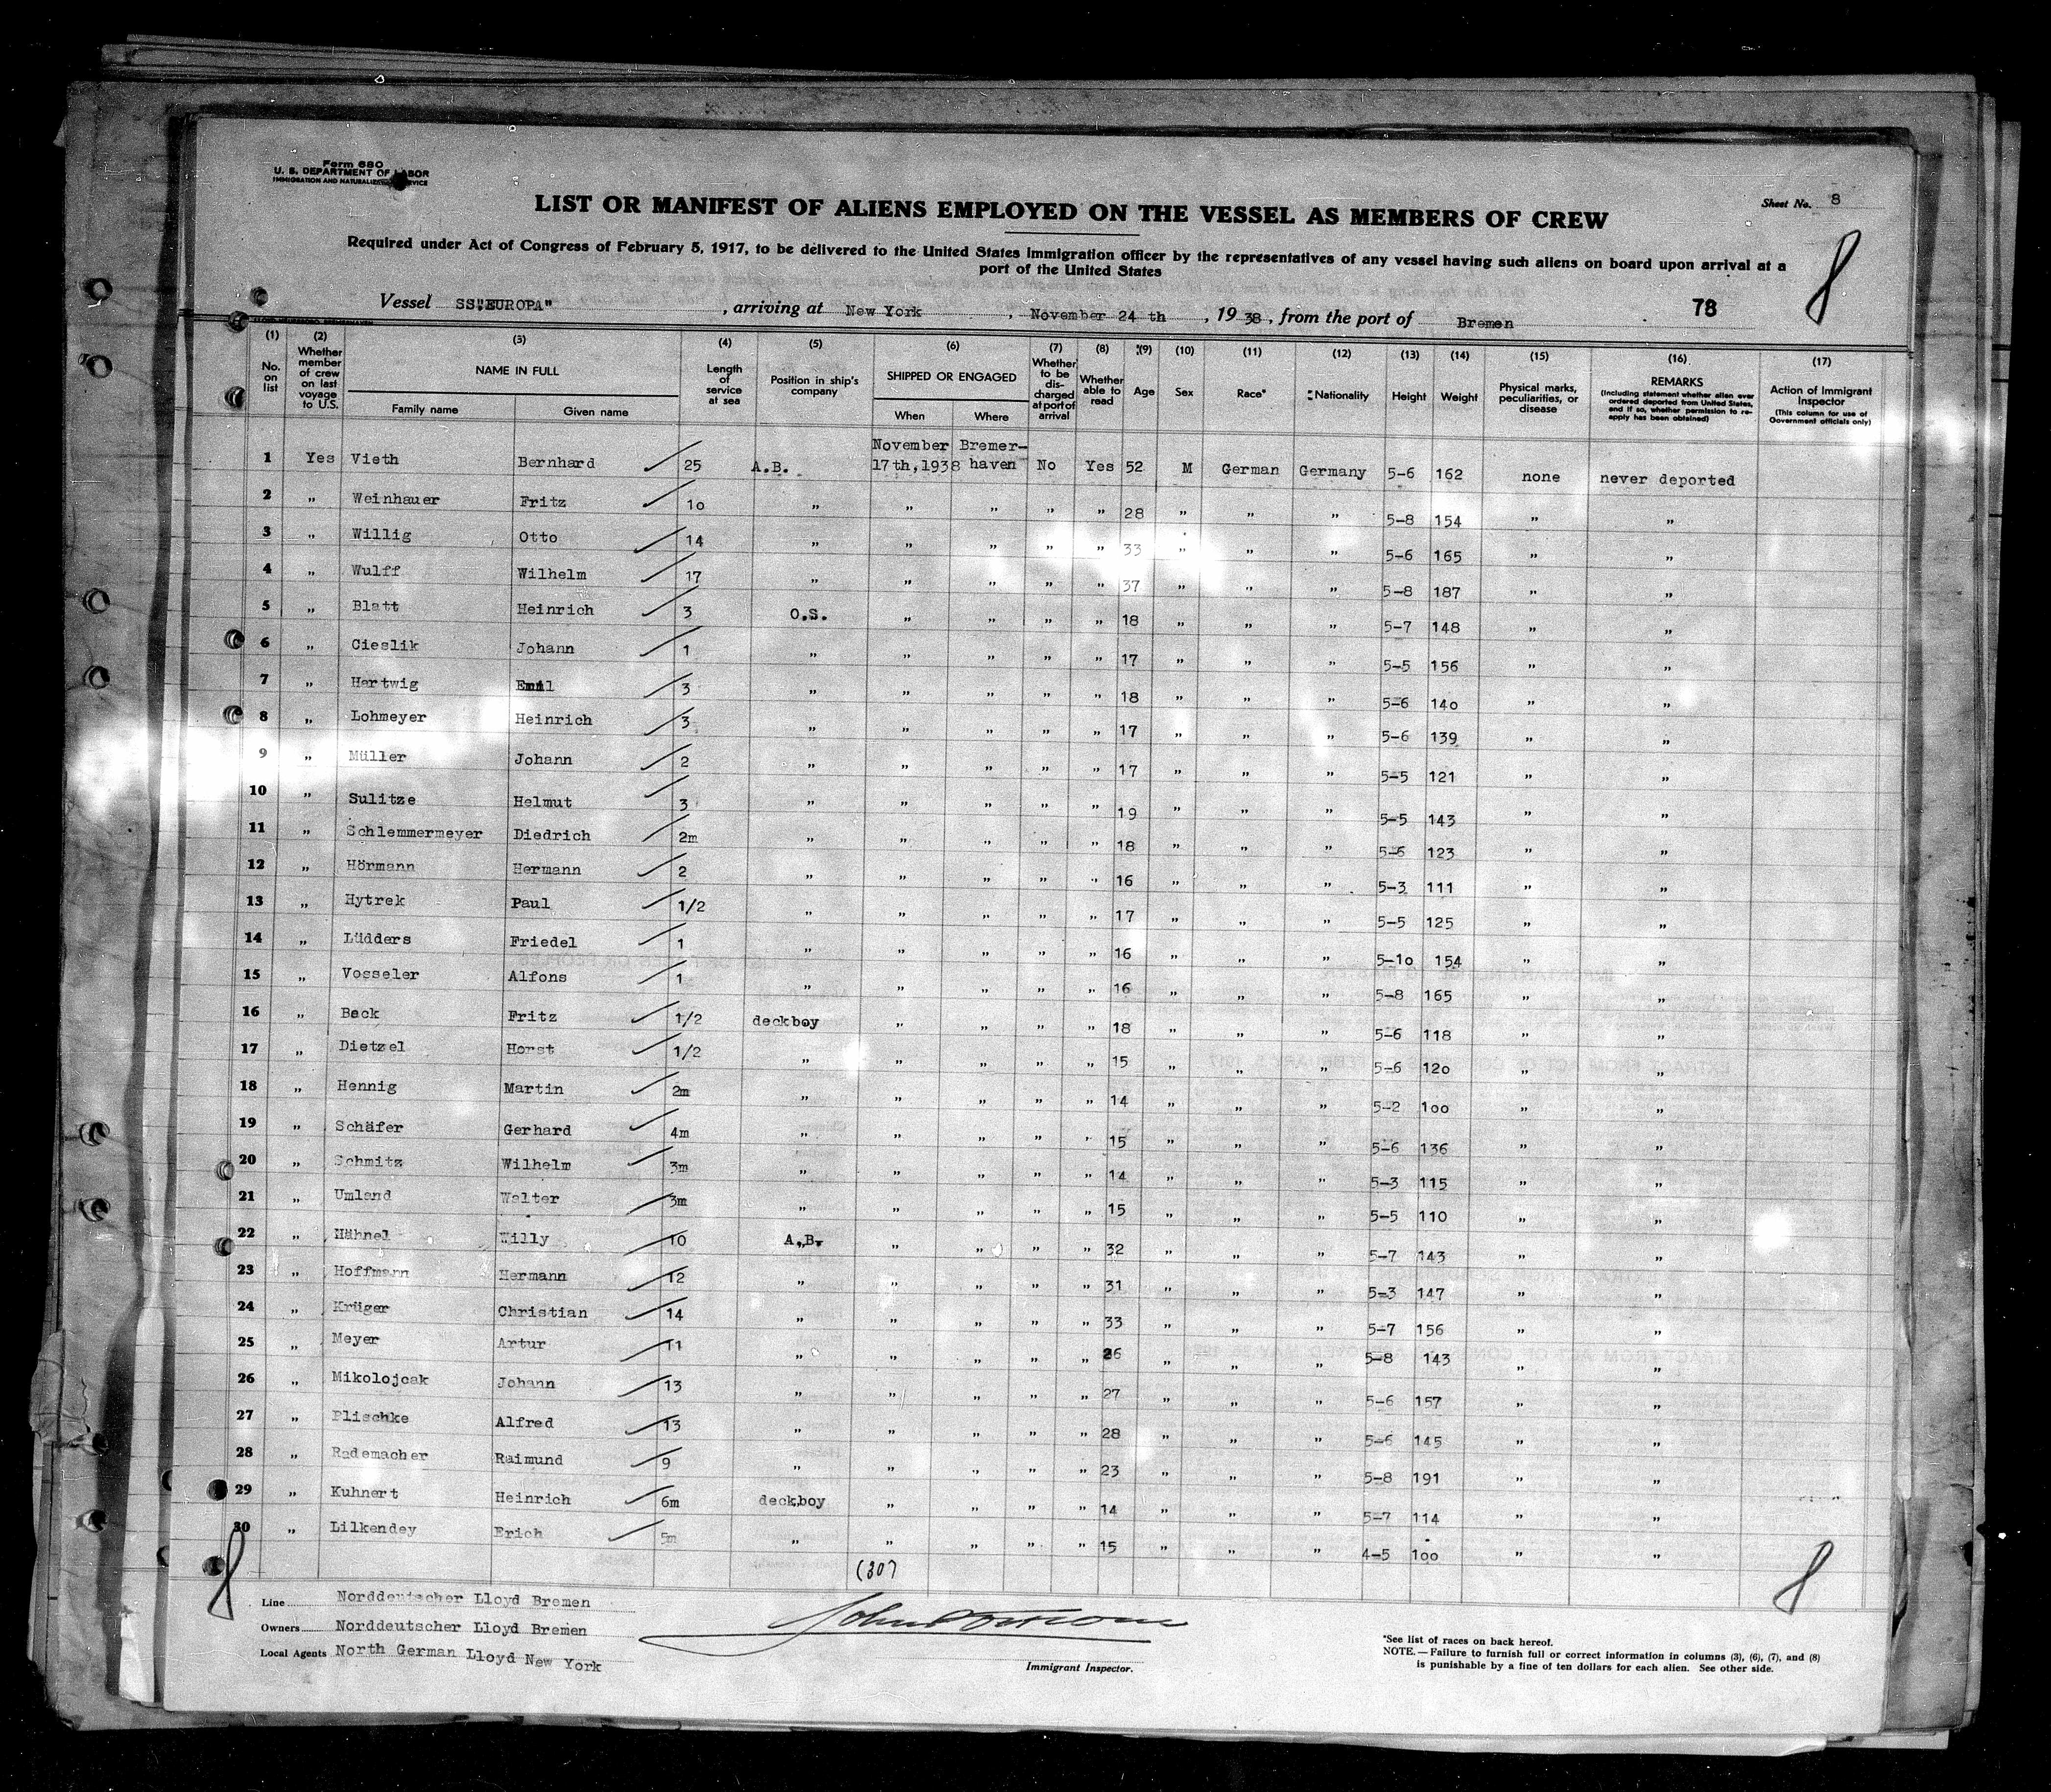 Form 680
U. S. DEPARTMENT OF LABOR
IMMIGRATION AND NATURALIZATION SERVICE
LIST OR MANIFEST OF ALIENS EMPLOYED ON THE VESSEL AS MEMBERS OF CREW
Sheet No. 8
8
Required under Act of Congress of February 5, 1917, to be delivered to the United States Immigration officer by the representatives of any vessel having such aliens on board upon arrival at a
port of the United States
Vessel SS"EUROPA", arriving at New York, November 24 th, 1938, from the port of Bremen 78
(1) (2) (3) (4) (5) (6) (7) (8) (9) (10) (11) (12) (13) (14) (15) (16) (17)
No. on list Whether member of crew on last voyage to U.S. NAME IN FULL Family name Given name Length of service at sea Position in ship's company SHIPPED OR ENGAGED When Where Whether to be discharged at port of arrival Whether able to read Age Sex Race* Nationality Height Weight Physical marks, peculiarities, or disease REMARKS (Including statement whether alien ever ordered deported from United States, and if so, whether permission to re-apply has been obtained) Action of Immigrant Inspector (This column for use of Government officials only)
1 Yes Vieth Bernhard 25 A.B. November 17th,1938 Bremer-haven No Yes 52 M German Germany 5-6 162 none never deported
2 " Weinhauer Fritz 10 " " " " " 28 " " " 5-8 154 " "
3 " Willig Otto 14 " " " " " 33 " " " 5-6 165 " "
4 " Wulff Wilhelm 17 " " " " " 37 " " " 5-8 187 " "
5 " Blatt Heinrich 3 O.S. " " " " 18 " " " 5-7 148 " "
6 " Cieslik Johann 1 " " " " " 17 " " " 5-5 156 " "
7 " Hartwig Emil 3 " " " " " 18 " " " 5-6 140 " "
8 " Lohmeyer Heinrich 3 " " " " " 17 " " " 5-6 139 " "
9 " Müller Johann 2 " " " " " 17 " " " 5-5 121 " "
10 " Sulitze Helmut 3 " " " " " 19 " " " 5-5 143 " "
11 " Schlemmermeyer Diedrich 2m " " " " " 18 " " " 5-6 123 " "
12 " Hörmann Hermann 2 " " " " " 16 " " " 5-3 111 " "
13 " Hytrek Paul 1/2 " " " " " 17 " " " 5-5 125 " "
14 " Lüdders Friedel 1 " " " " " 16 " " " 5-10 154 " "
15 " Vosseler Alfons 1 " " " " " 16 " " " 5-8 165 " "
16 " Back Fritz 1/2 deckboy " " " " 18 " " " 5-6 118 " "
17 " Dietzel Horst 1/2 " " " " " 15 " " " 5-6 120 " "
18 " Hennig Martin 2m " " " " " 14 " " " 5-2 100 " "
19 " Schäfer Gerhard 4m " " " " " 15 " " " 5-6 136 " "
20 " Schmitz Wilhelm 3m " " " " " 14 " " " 5-3 115 " "
21 " Umland Walter 3m " " " " " 15 " " " 5-5 110 " "
22 " Hähnel Willy 10 A.B. " " " " 32 " " " 5-7 143 " "
23 " Hoffmann Hermann 12 " " " " " 31 " " " 5-3 147 " "
24 " Krüger Christian 14 " " " " " 33 " " " 5-7 156 " "
25 " Meyer Artur 11 " " " " " 26 " " " 5-8 143 " "
26 " Mikolojcak Johann 13 " " " " " 27 " " " 5-6 157 " "
27 " Plischke Alfred 13 " " " " " 28 " " " 5-6 145 " "
28 " Rademacher Raimund 9 " " " " " 23 " " " 5-8 191 " "
29 " Kuhnert Heinrich 6m deckboy " " " " 14 " " " 5-7 114 " "
30 " Lilkendey Erich 5m " " " " " 15 " " " 4-5 100 " "
(30)
8 8
Line Norddeutscher Lloyd Bremen
Owners Norddeutscher Lloyd Bremen
Local Agents North German Lloyd New York
Immigrant Inspector.
*See list of races on back hereof.
NOTE.—Failure to furnish full or correct information in columns (3), (6), (7), and (8)
is punishable by a fine of ten dollars for each alien. See other side.